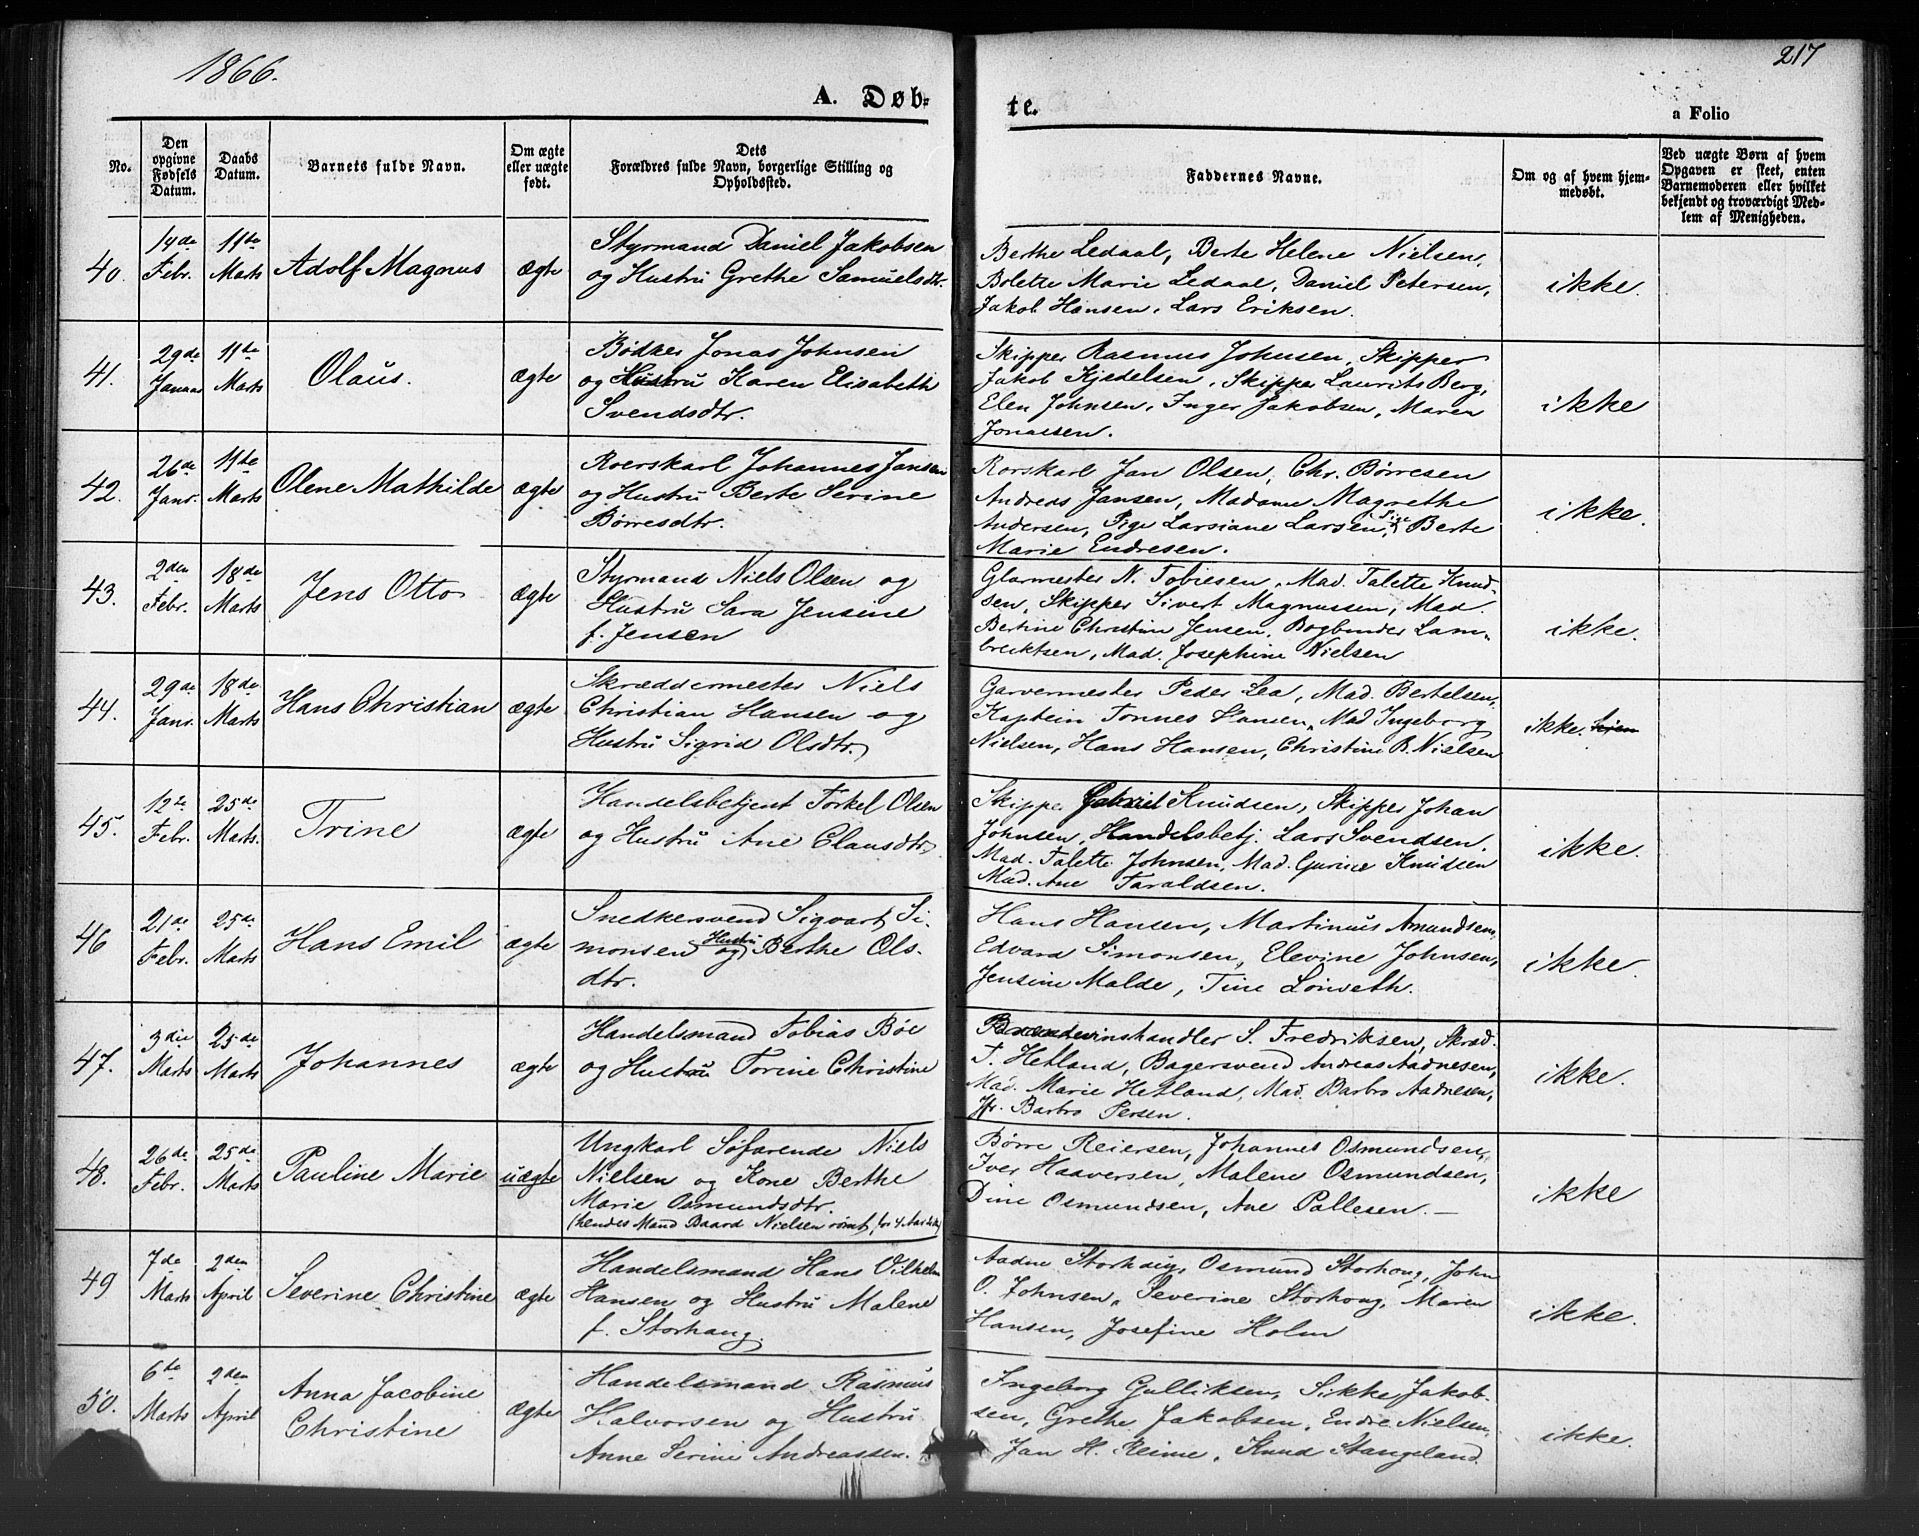 1866.
217
A. Døb-
te.
a Folio
No.
Den opgivne Fødsels Datum.
Daabs Datum.
Barnets fulde Navn.
Om ægte eller uægte født.
Dets Forældres fulde Navn, borgerlige Stilling og Opholdssted.
Faddernes Navne.
Om og af hvem hjemmedøbt.
Ved uægte Børn af hvem Opgaven er skeet, enten Barnemoderen eller hvilket bekjendt og troværdigt Medlem af Menigheden.
40.
14de Febr.
11te Marts
Adolf Magnus
ægte
Styrmand Daniel Jakobsen
og Hustru Grethe Samuelsdtr.
Berthe Ledaal, Berte Helene Nielsen,
Bolette Marie Ledaal, Daniel Petersen,
Jakob Hansen, Lars Eriksen.
ikke.
41.
29de Januar
11te Marts
Olaus.
ægte
Bødker Jonas Johnsen
og Hustru Karen Elisabeth
Svendsdtr.
Skipper Rasmus Johnsen, Skipper
Jakob Kjedelsen, Skipper Laurits Berg,
Elen Johnsen, Inger Jakobsen, Maren
Jonassen.
ikke
42.
26de Janr.
11te Marts
Olene Mathilde
ægte
Roerskarl Johannes Jansen
og Hustru Berte Serine
Børresdtr.
Rorskarl Jan Olsen, Chr. Børresen
Andreas Jansen, Madame Magrethe
Andersen, Pige Larsiane Larsen, Pige Berte
Marie Endresen.
ikke.
43.
2den Febr.
18de Marts
Jens Otto
ægte
Styrmand Niels Olsen og
Hustru Sara Jensine
f. Jensen
Glarmester N. Tobiesen, Mad. Talette Knud-
sen, Skipper Sivert Magnussen, Mad
Bertine Christine Jensen, Bogbinder Lam-
brektsen, Mad. Josephine Nielsen
ikke.
44.
29de Janr.
18de Marts
Hans Christian
ægte
Skræddermester Niels
Christian Hansen og
Hustru Sigrid Olsdtr.
Garvermester Peder Lea, Mad. Bertelsen,
Kaptein Tønnes Hansen, Mad Ingeborg
Nielsen, Hans Hansen, Christine B. Nielsen
ikke.
45.
12te Febr.
25de Marts.
Trine
ægte
Handelsbetjent Torkel Olsen
og Hustru Ane Clausdtr.
Skipper Gabriel Knudsen, Skipper Johan
Johnsen, Handelsbetj. Lars Svendsen.
Mad. Talette Johnsen, Mad. Gurine Knudsen
Mad. Ane Taraldsen.
ikke.
46
21de Febr.
25de Marts
Hans Emil
ægte
Snedkersvend Sigvart Si-
monsen og Hustru Berthe Ols-
dtr.
Hans Hansen, Martinus Amundsen,
Edvard Simonsen, Elevine Johnsen,
Jensine Malde, Tine Lonveth.
ikke.
47.
3die Marts
25de Marts
Johannes
ægte
Handelsmand Tobias Bøe
og Hustru Torine Christine
Brændevinshandler S. Fredriksen, Skræd.
T. Hetland, Bagersvend Andreas Aadnesen,
Mad. Marie Hetland, Mad. Barbro Aadnesen,
Jfr. Barbro Persen.
ikke.
48.
26de Febr.
25de Marts
Pauline Marie
uægte
Ungkarl Søfarende Niels
Nielsen og Kone Berthe
Marie Osmundsdtr.
(hendes Mand Baard Nielsen rømt, for 4 Aar siden)
Børre Reiersen, Johannes Osmundsen,
Iver Haaversen, Malene Osmundsen,
Dine Osmundsen, Ane Pallesen. —
ikke
49
7de Marts
2den April
Severine Christine
ægte
Handelsmand Hans Vilhelm
Hansen og Hustru Malene
f. Storhaug.
Aadne Storhaug, Osmund Storhong, John
O. Johnsen, Severine Storhong, Maren
Hansen, Josefine Holm
ikke.
50.
6te Marts
2den April
Anna Jacobine
Christine
ægte
Handelsmand Rasmus
Halvorsen og Hustru
Anne Serine Andreassen.
Ingeborg Gulliksen, Sikke Jakob-
sen, Grethe Jakobsen, Endre Nielsen,
Jan H. Reime, Knud Stangeland
ikke.